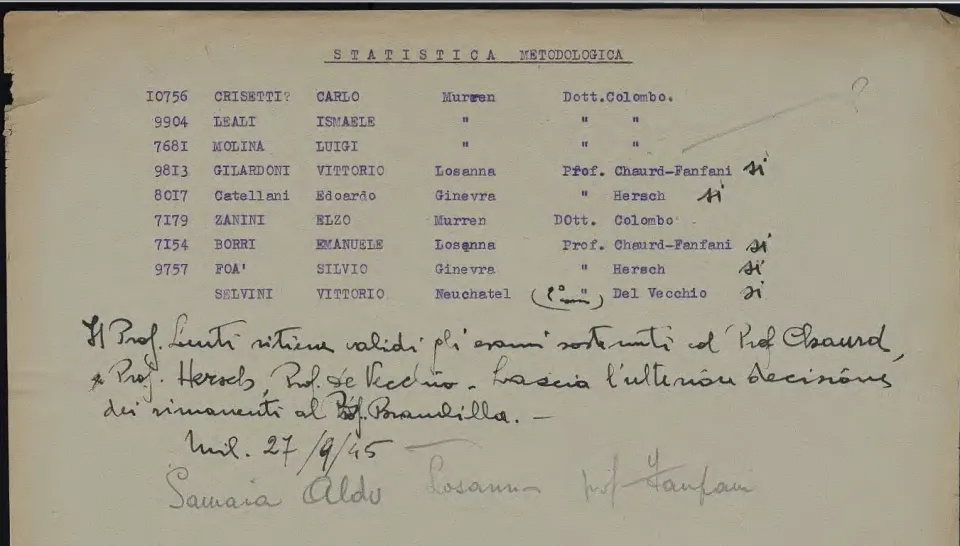 STATISTICA METODOLOGICA
10756 CRISETTI? CARLO Murren Dott.Colombo. ?
9904 LEALI ISMAELE " " "
7681 MOLINA LUIGI " " "
9813 GILARDONI VITTORIO Losanna Prof. Chaurd-Fanfani si
8017 Catellani Edoardo Ginevra " Hersch si
7179 ZANINI ELZO Murren DOtt. Colombo
7154 BORRI EMANUELE Losanna Prof. Chaurd-Fanfani si
9757 FOA' SILVIO Ginevra " Hersch si
SELVINI VITTORIO Neuchatel " Del Vecchio si
Il Prof. Lenti ritiene validi gli esami sostenuti col Prof Chaurd,
Prof. Hersch, Prof. De Vecchio. Lascia l'ulteriore decisione
dei rimanenti al Prof. Brambilla. —
Mil. 27/9/45
Samaia Aldo Losanna prof Fanfani